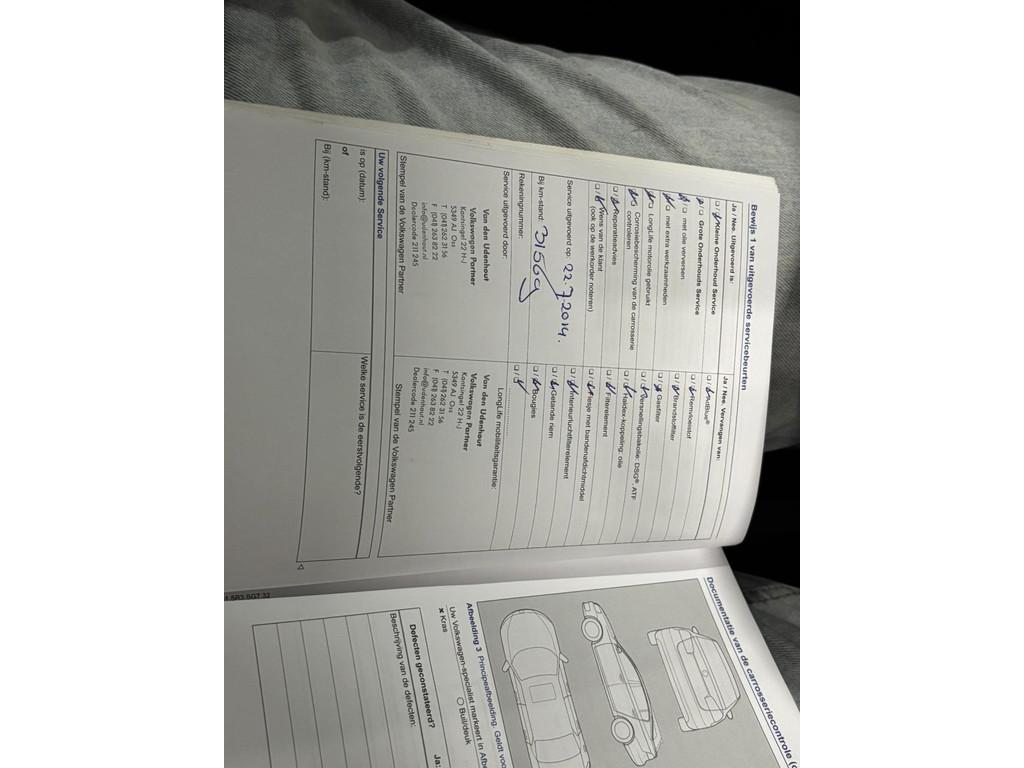 Bewijs 1 van uitgevoerde servicebeurten
Ja / Nee. Uitgevoerd is:
Kleine Onderhoud Service
Grote Onderhouds Service
met olie verversen
met extra werkzaamheden
LongLife motorolie gebruikt
Corrosiebescherming van de carrosserie
controleren
Reparatieadvies
Wens van de klant
(ook op de werkorder noteren)
Service uitgevoerd op: 22.7.2014.
Bij km-stand: 31569
Rekeningnummer:
Service uitgevoerd door:
Van den Udenhout
Volkswagen Partner
Kantsingel 22 H-J
5349 AJ Oss
T (041) 262 31 56
F (041) 263 82 22
info@udenhout.nl
Dealercode 211 245
Stempel van de Volkswagen Partner
Ja / Nee. Vervangen van:
AdBlue®
Remvloeistof
Brandstoffilter
Gasfilter
Versnellingsbakolie: DSG®, ATF
Haldex-koppeling: olie
Filterelement
Flesje met bandenafdichtmiddel
Interieurluchtfilterelement
Getande riem
Bougies
LongLife mobiliteitsgarantie:
Van den Udenhout
Volkswagen Partner
Kantsingel 22 H-J
5349 AJ Oss
T (041) 262 31 56
F (041) 263 82 22
info@udenhout.nl
Dealercode 211 245
Stempel van de Volkswagen Partner
Uw volgende Service
is op (datum):
of
Bij (km-stand):
Welke service is de eerstvolgende?
Documentatie van de carrosseriecontrole
Afbeelding 3 Principeafbeelding. Geldt voo
Uw Volkswagen-specialist markeert in Afbe
× Kras
Buil/deuk
Defecten geconstateerd?
Ja:
Beschrijving van de defecten: